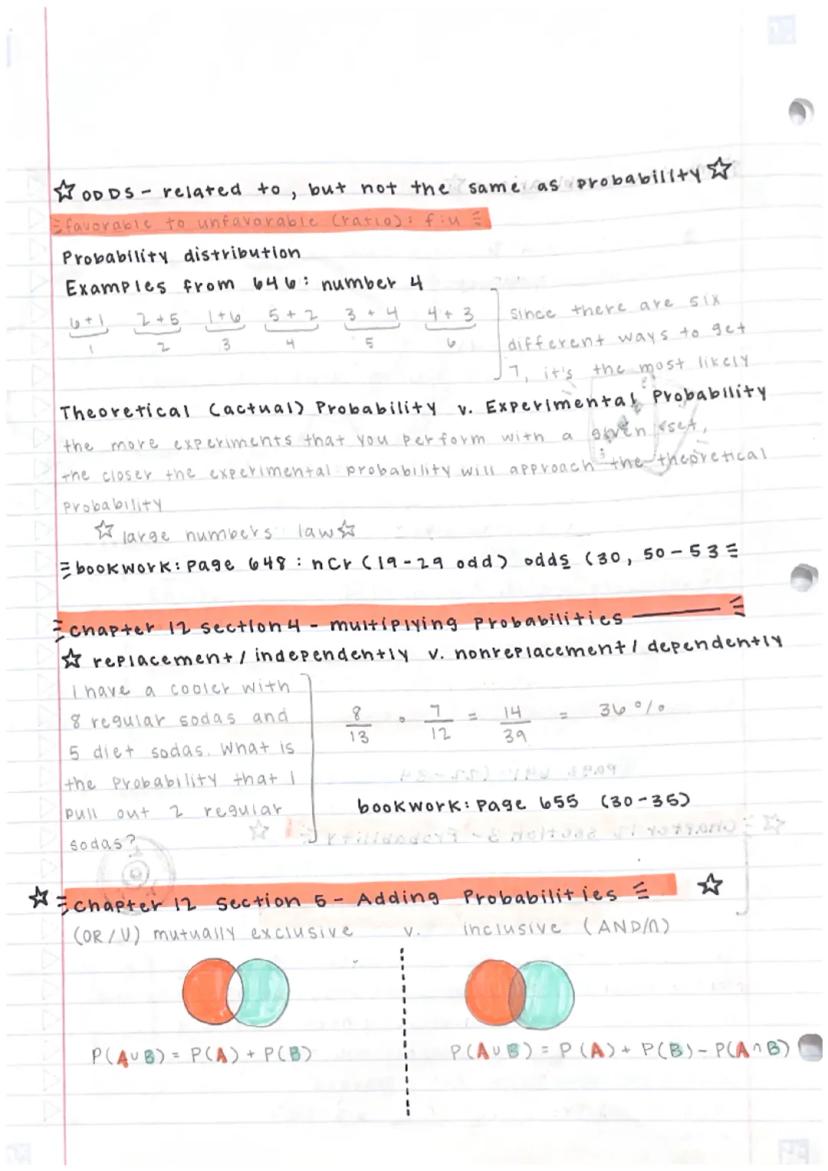 ☆ ODDS - related to, but not the same as probability ☆
favorable to unfavorable (ratio): f:u
Probability distribution
Examples from 646: number 4
6+1 2+5 1+6 5+2 3+4 4+3
1 2 3 4 5 6
since there are six
different ways to get
7, it's the most likely
Theoretical (actual) Probability v. Experimental Probability
the more experiments that you perform with a given set,
the closer the experimental probability will approach the theoretical
probability
☆ large numbers law ☆
bookwork: page 648: nCr (19-29 odd) odds (30, 50-53
chapter 12 section 4 - multiplying Probabilities
☆ replacement/independently v. nonreplacement/dependently
I have a cooler with
8 regular sodas and
5 diet sodas. What is
the probability that I
pull out 2 regular
sodas?
8/13 • 7/12 = 14/39 = 36%
bookwork: page 655 (30-35)
☆ chapter 12 section 5 - Adding Probabilities ☆
(OR/U) mutually exclusive v. inclusive (AND/∩)
P(A∪B) = P(A) + P(B)
P(A∪B) = P(A) + P(B) - P(A∩B)